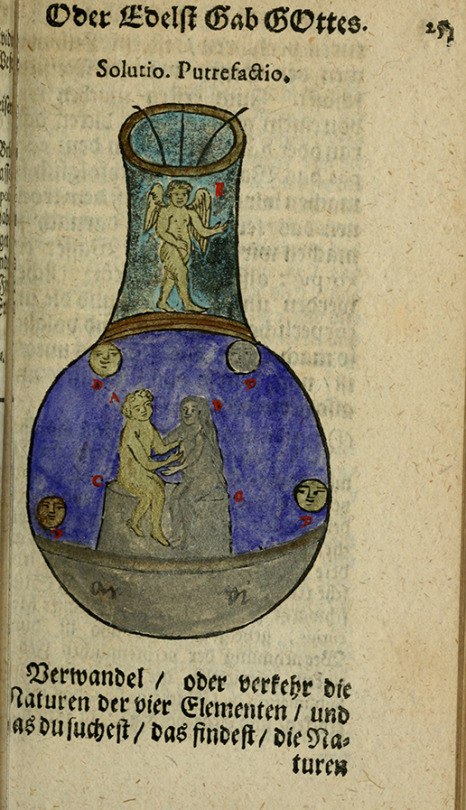 Oder Edelst Gab GOttes.
Solutio. Putrefactio.
A
B
C
Verwandel / oder verkehr die
Naturen der vier Elementen / und
as du suchest / das findest / die Na⸗
turen